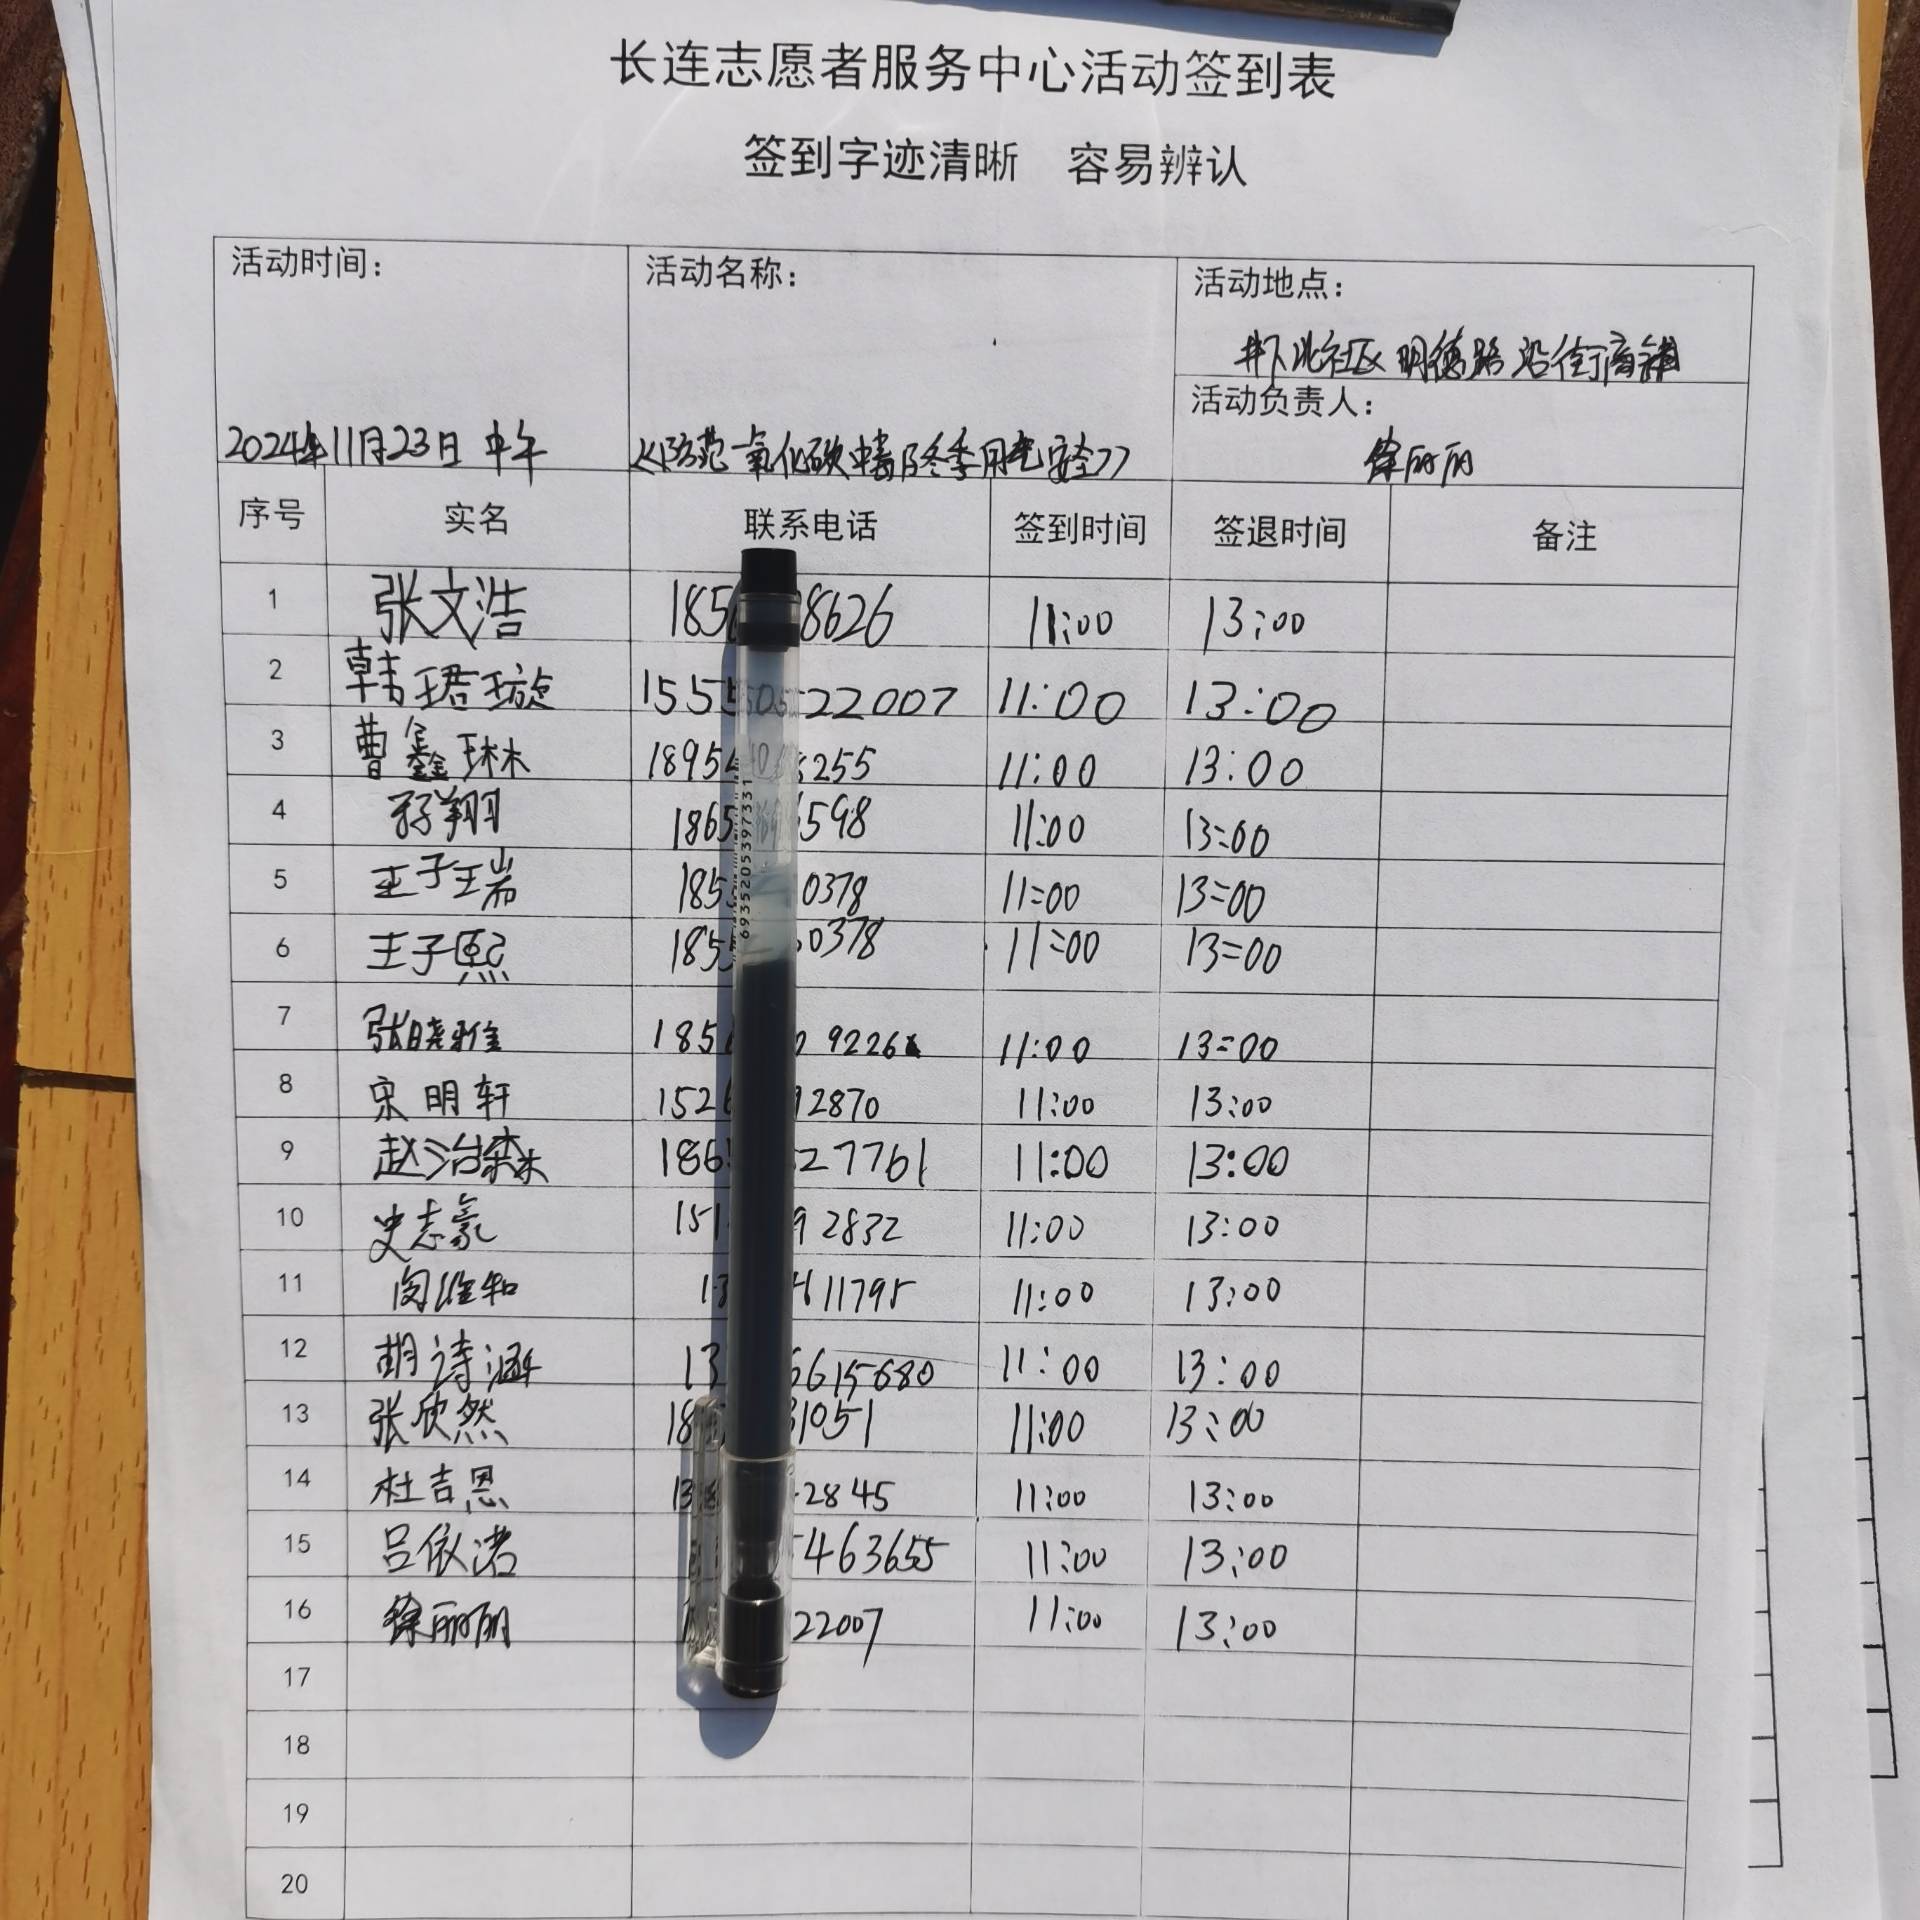 长连志愿者服务中心活动签到表
签到字迹清晰 容易辨认
活动时间： 活动名称： 活动地点：
井下北社区明德路沿街商铺
活动负责人：
2024年11月23日 中午 《防范一氧化碳中毒及冬季用电安全》 徐丽丽
序号 实名 联系电话 签到时间 签退时间 备注
1 张文浩 185 8626 11:00 13:00
2 韩珺璇 155 22007 11:00 13:00
3 曹鑫琳 1895 8255 11:00 13:00
4 孙翔 1865 6598 11:00 13:00
5 王子瑞 185 0378 11:00 13:00
6 王子熙 185 0378 11:00 13:00
7 张晓雅 185 9226 11:00 13:00
8 宋明轩 152 92870 11:00 13:00
9 赵治森 186 27761 11:00 13:00
10 史志豪 151 92832 11:00 13:00
11 闵维和 13 11795 11:00 13:00
12 胡诗涵 13 6615680 11:00 13:00
13 张欣然 18 31051 11:00 13:00
14 杜吉恩 13 2845 11:00 13:00
15 吕依诺 5463655 11:00 13:00
16 徐丽丽 22007 11:00 13:00
17
18
19
20
6935205397331